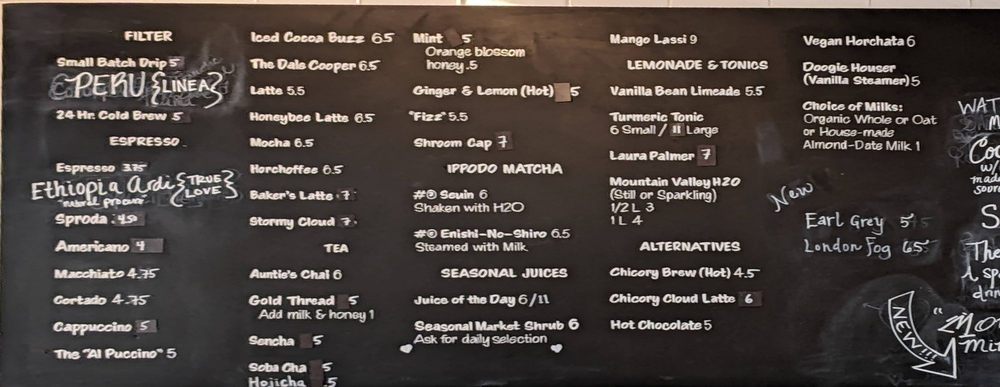 FILTER
Small Batch Drip 5
PERU {LINEA}
24 Hr. Cold Brew 5
ESPRESSO
Espresso 3.75
Ethiopia Ardi {TRUE LOVE}
natural process
Sproda 4.50
Americano 4
Macchiato 4.75
Cortado 4.75
Cappuccino 5
The "Al Puccino" 5
Iced Cocoa Buzz 6.5
The Dale Cooper 6.5
Latte 5.5
Honeybee Latte 6.5
Mocha 6.5
Horchoffee 6.5
Baker's Latte 7
Stormy Cloud 7
TEA
Auntie's Chai 6
Gold Thread 5
Add milk & honey 1
Sencha 5
Soba Cha 5
Hojicha .5
Mint 5
Orange blossom
honey .5
Ginger & Lemon (Hot) 5
"Fizz" 5.5
Shroom Cap 7
IPPODO MATCHA
Shaken with H2O
#® Enishi-No-Shiro 6.5
Steamed with Milk
SEASONAL JUICES
Juice of the Day 6/11
Seasonal Market Shrub 6
Ask for daily selection
Mango Lassi 9
LEMONADE & TONICS
Vanilla Bean Limeade 5.5
Turmeric Tonic
6 Small / 11 Large
Laura Palmer 7
Mountain Valley H2O
(Still or Sparkling)
1/2 L 3
1 L 4
ALTERNATIVES
Chicory Brew (Hot) 4.5
Chicory Cloud Latte 6
Hot Chocolate 5
Vegan Horchata 6
Doogie Houser
(Vanilla Steamer) 5
Choice of Milks:
Organic Whole or Oat
or House-made
Almond-Date Milk 1
New
Earl Grey 5
London Fog 6.5
WAT
M
Coo
w/
made
sour
S
The
spa
drin
NEW!!!
"Mo
Mi